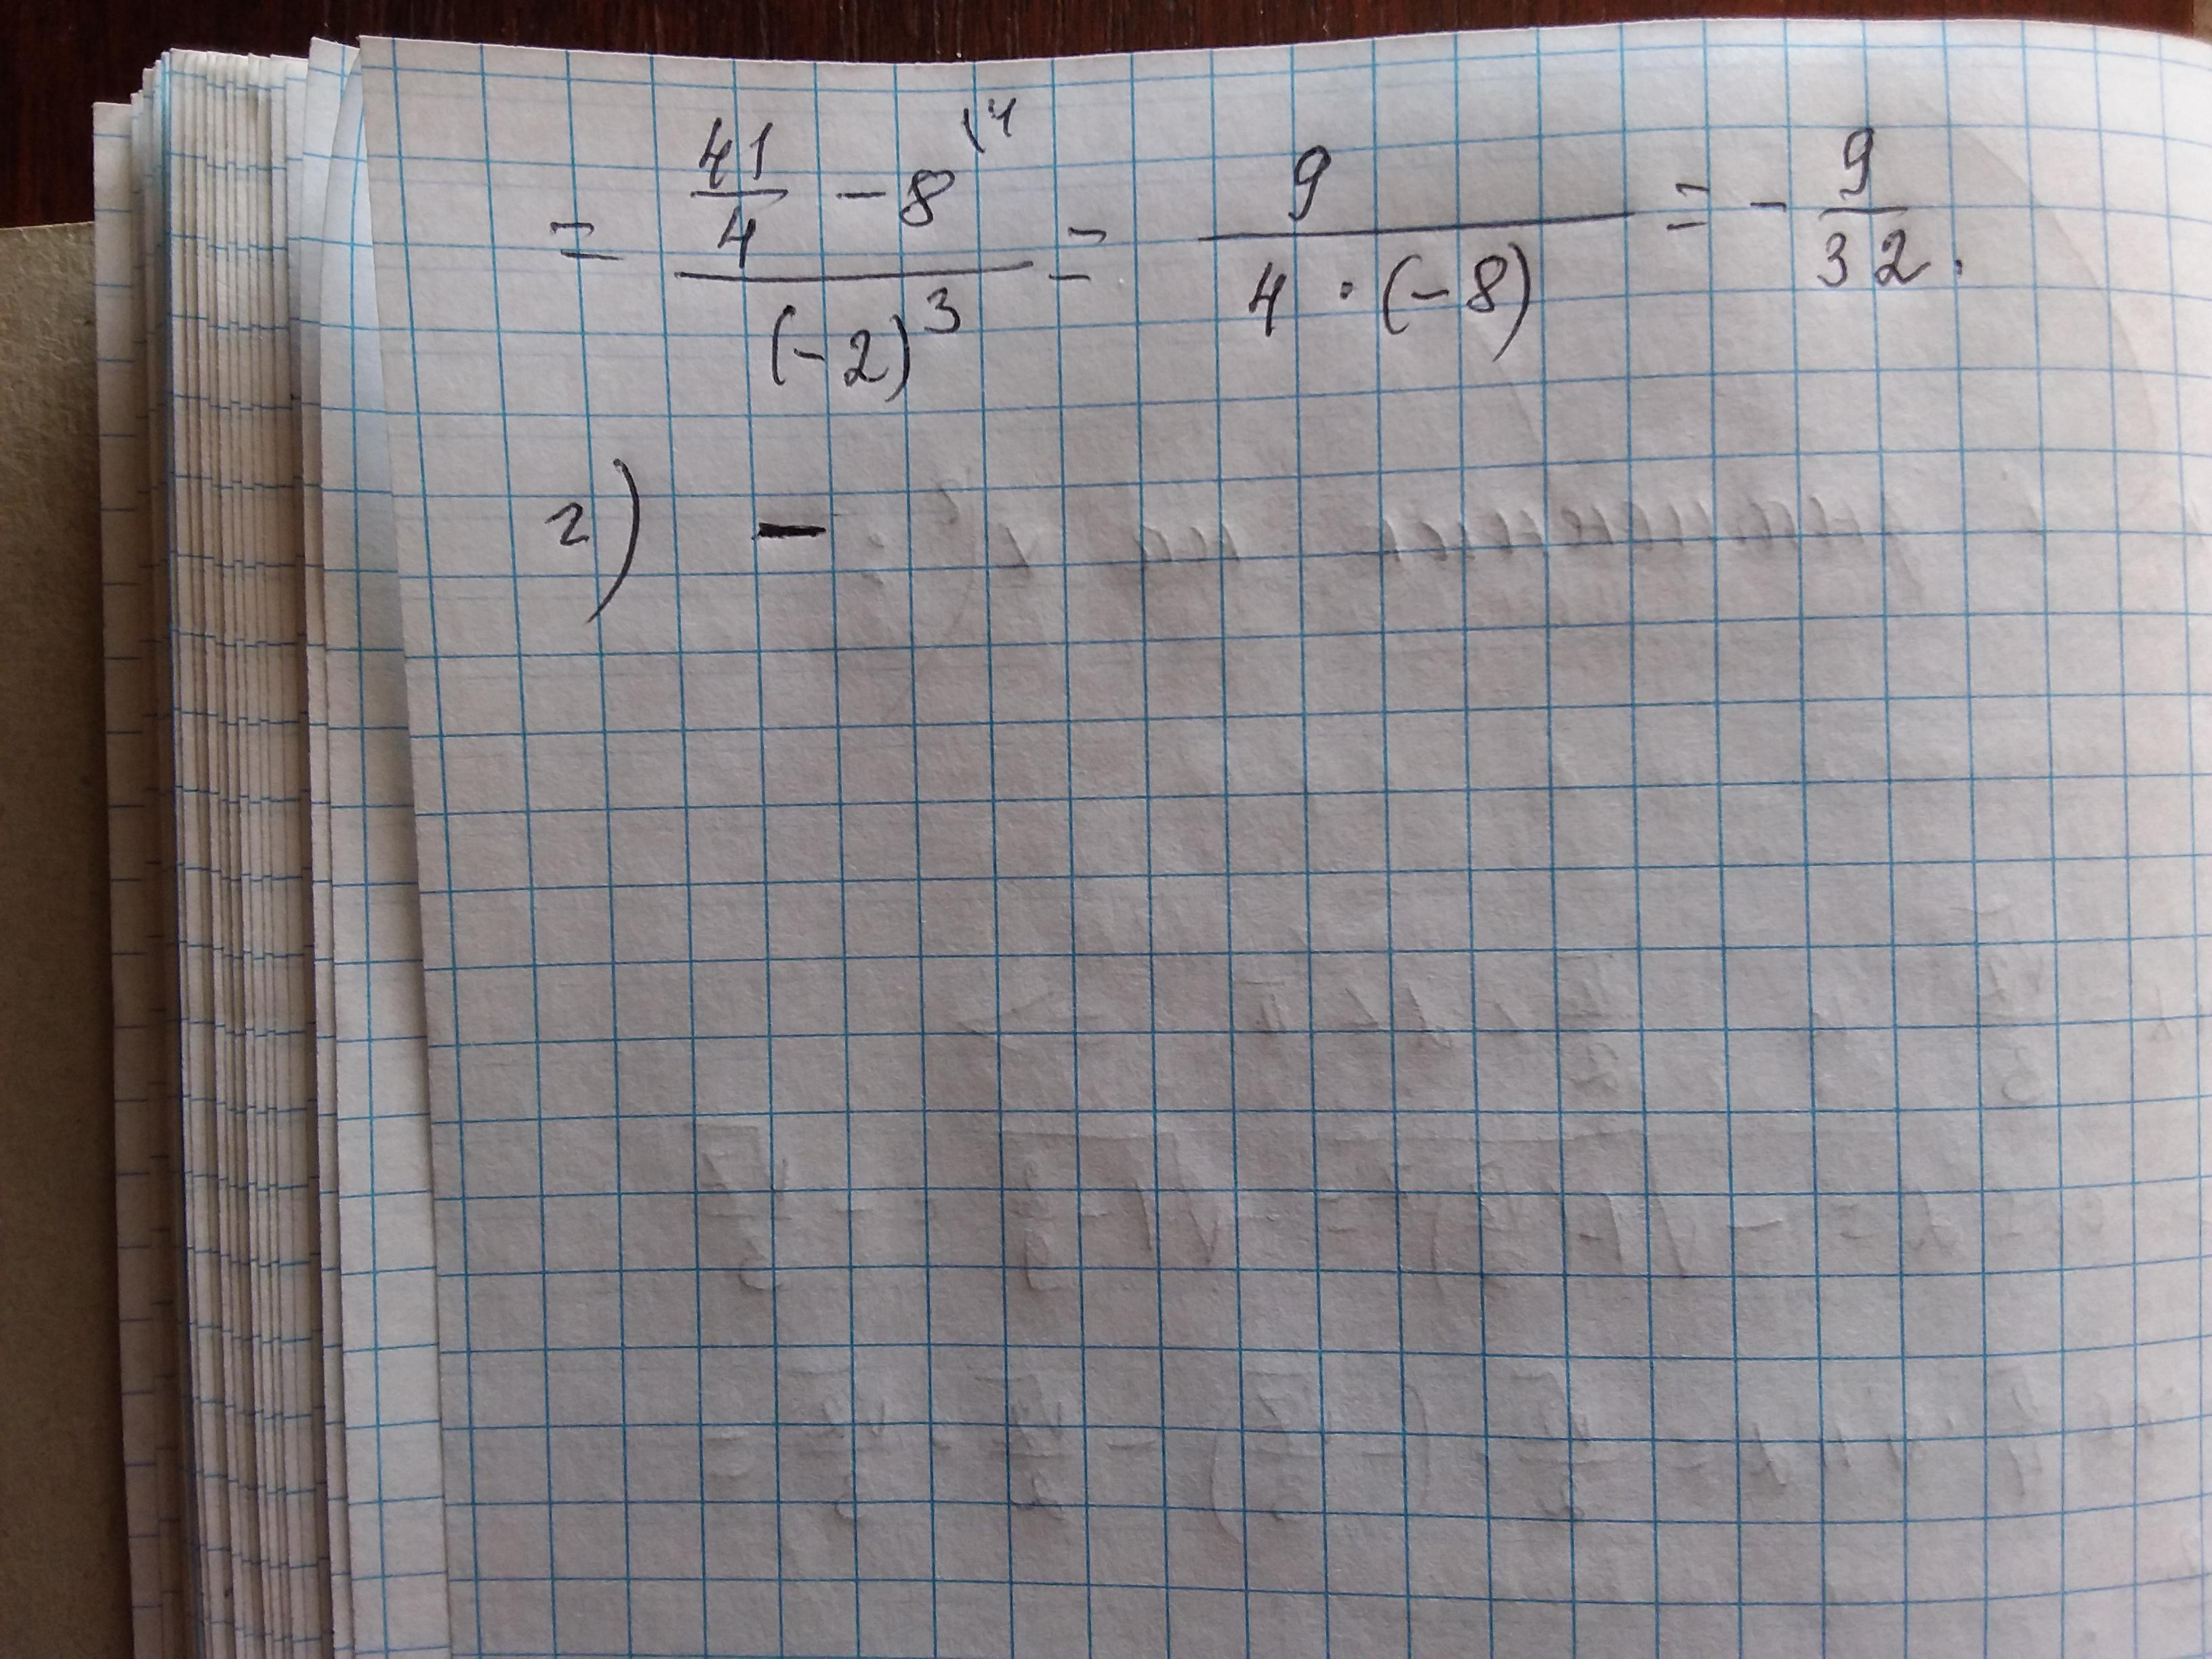 = (41/4 - 8\4)/(-2)³ = 9/(4 · (-8)) = - 9/32.
г) -